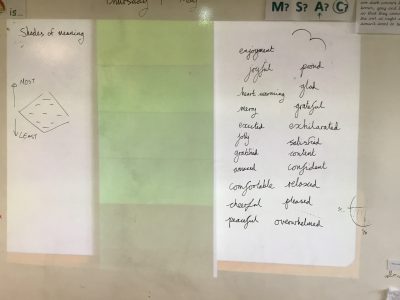 is...
Thursday
M? S? A? C?
Shades of meaning
MOST
LEAST
enjoyment
joyful proud
glad
heart warming
merry grateful
excited exhilarated
jolly satisfied
gratified content
amused confident
comfortable relaxed
cheerful pleased
peaceful overwhelmed